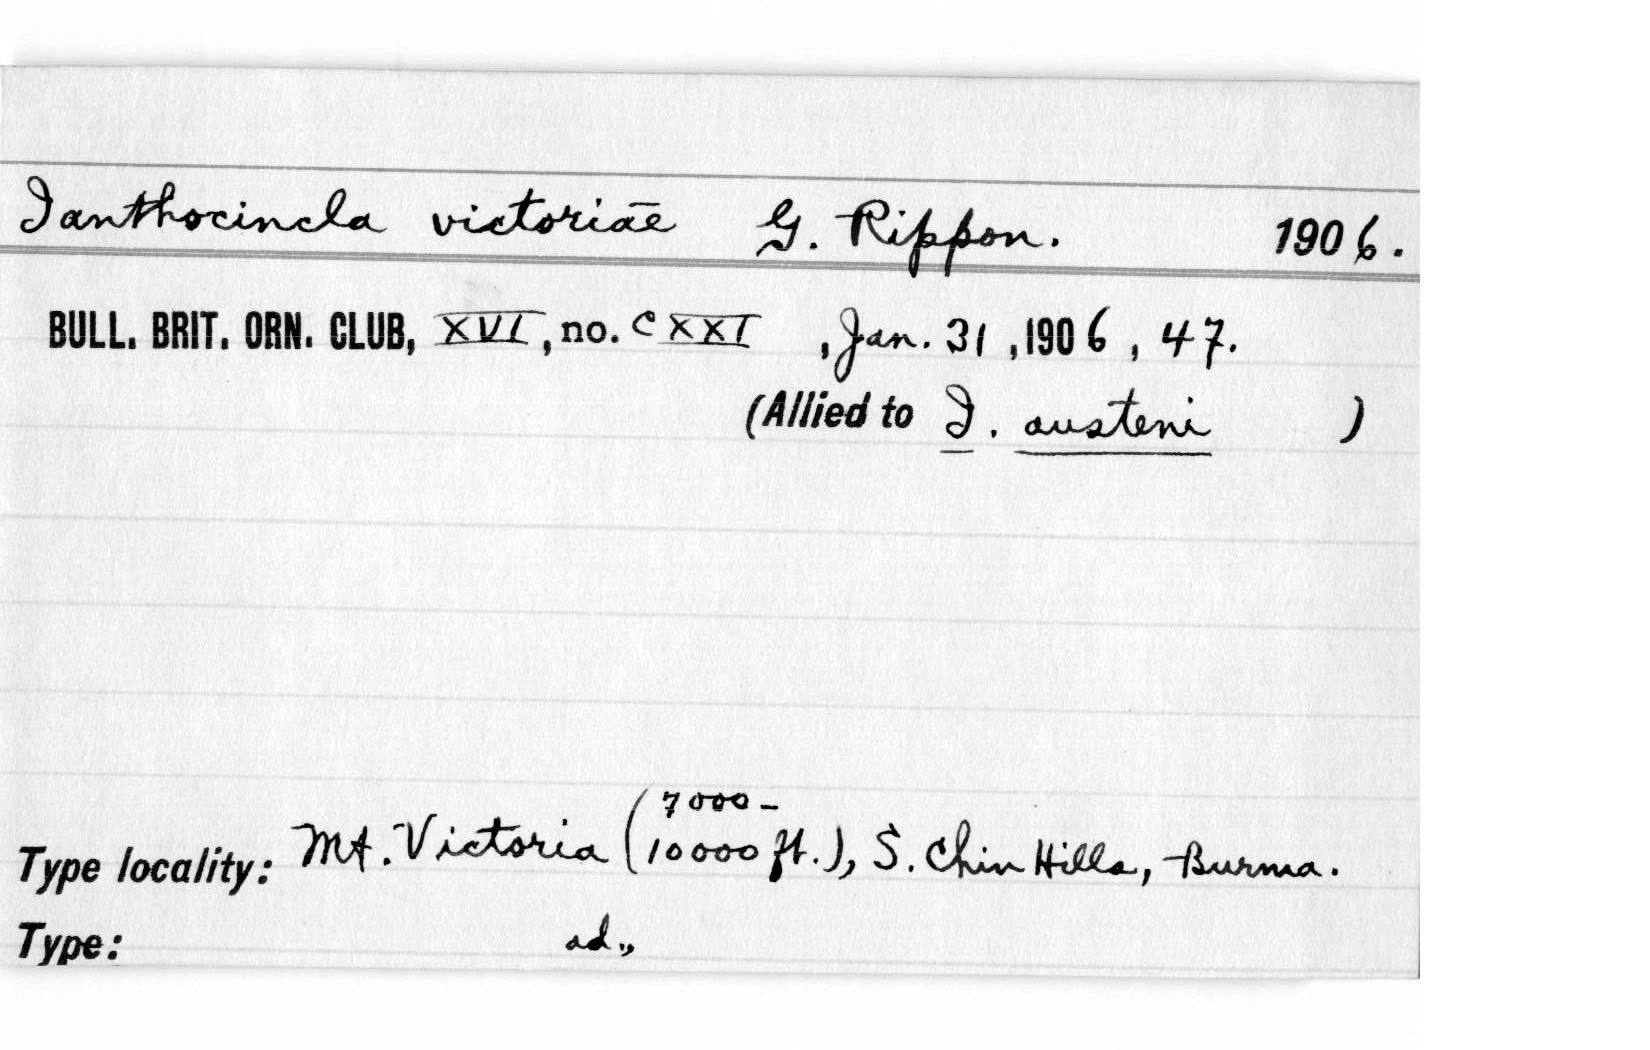 Ianthocincla victoriae G. Rippon. 1906.
BULL. BRIT. ORN. CLUB, XVI, no. CXXI, Jan. 31, 1906, 47.
(Allied to I. austeni )
7000-
Type locality: Mt. Victoria (10000 ft.), S. Chin Hills, Burma.
Type: ad.,